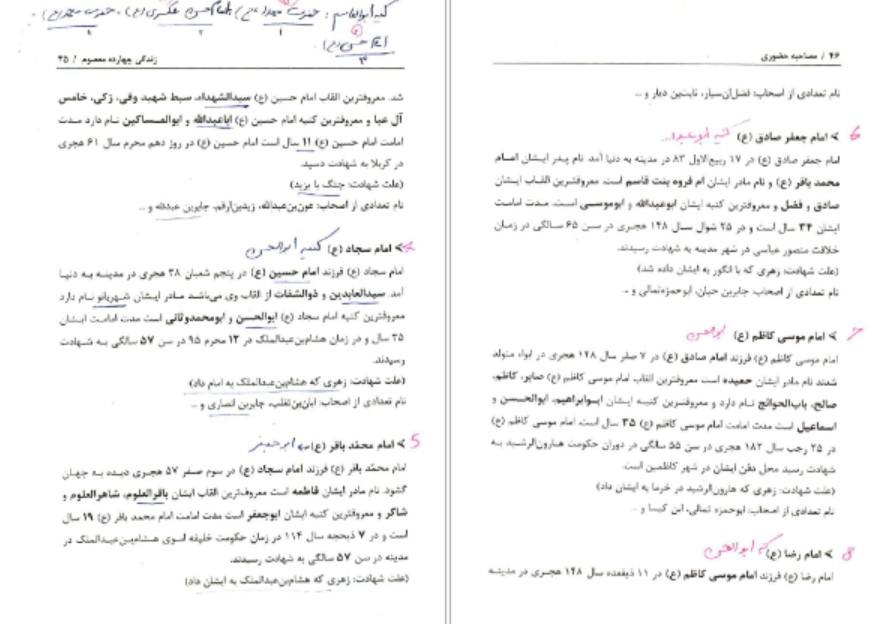 کنیه ابوالقاسم: حضرت محمد (ص)، امام حسن عسکری (ع)، حضرت مهدی (عج)
۱ ۲
امام حسن (ع)
۳
زندگی چهارده معصوم / ۴۵
شد. معروفترین القاب امام حسین (ع) سیدالشهداء، سبط شهید وفی، زکی، خامس
آل عبا و معروفترین کنیه امام حسین (ع) اباعبدالله و ابوالمساکین نام دارد مدت
امامت امام حسین (ع) ۱۱ سال است امام حسین (ع) در روز دهم محرم سال ۶۱ هجری
در کربلا به شهادت رسید.
(علت شهادت: جنگ با یزید)
نام تعدادی از اصحاب: عون‌بن‌عبدالله، زیدبن‌ارقم، جابربن عبدالله و ...
4 > امام سجاد (ع) کنیه ابوالحسن
امام سجاد (ع) فرزند امام حسین (ع) در پنجم شعبان ۳۸ هجری در مدینه به دنیا
آمد. سیدالعابدین و ذوالثفنات از القاب وی می‌باشد مادر ایشان شهربانو نام دارد
معروفترین کنیه امام سجاد (ع) ابوالحسن و ابومحمدوثانی است مدت امامت ایشان
۳۵ سال و در زمان هشام‌بن‌عبدالملک در ۱۲ محرم ۹۵ در سن ۵۷ سالگی به شهادت
رسیدند.
(علت شهادت: زهری که هشام‌بن‌عبدالملک به امام داد)
نام تعدادی از اصحاب: ابان‌بن‌تغلب، جابربن انصاری و ...
5 > امام محمّد باقر (ع) ابوجعفر
امام محمّد باقر (ع) فرزند امام سجاد (ع) در سوم صفر ۵۷ هجری دیده به جهان
گشود. نام مادر ایشان فاطمه است معروف‌ترین القاب ایشان باقرالعلوم، شاهرالعلوم و
شاکر و معروفترین کنیه ایشان ابوجعفر است مدت امامت امام محمد باقر (ع) ۱۹ سال
است و در ۷ ذیحجه سال ۱۱۴ در زمان حکومت خلیفه اموی هشام‌بن‌عبدالملک در
مدینه در سن ۵۷ سالگی به شهادت رسیدند.
(علت شهادت: زهری که هشام‌بن‌عبدالملک به ایشان داد)
۴۶ / مصاحبه حضوری
نام تعدادی از اصحاب: فضل‌ان‌سیار، ثابت‌بن دینار و ...
6 > امام جعفر صادق (ع) کنیه ابوعبدا...
امام جعفر صادق (ع) در ۱۷ ربیع‌الاول ۸۳ در مدینه به دنیا آمد نام پدر ایشان امام
محمد باقر (ع) و نام مادر ایشان ام فروه بنت قاسم است. معروفترین القاب ایشان
صادق و فضل و معروفترین کنیه ایشان ابوعبدالله و ابوموسی است. مدت امامت
ایشان ۳۴ سال است و در ۲۵ شوال سال ۱۴۸ هجری در سن ۶۵ سالگی در زمان
خلافت منصور عباسی در شهر مدینه به شهادت رسیدند.
(علت شهادت: زهری که با انگور به ایشان داده شد)
نام تعدادی از اصحاب: جابربن حیان، ابوحمزه‌ثمالی و ...
7 > امام موسی کاظم (ع) ابوالحسن
امام موسی کاظم (ع) فرزند امام صادق (ع) در ۷ صفر سال ۱۲۸ هجری در ابواء متولد
شدند نام مادر ایشان حمیده است معروفترین القاب امام موسی کاظم (ع) صابر، کاظم،
صالح، باب‌الحوائج نام دارد و معروفترین کنیه ایشان ابوابراهیم، ابوالحسن و
اسماعیل است مدت امامت امام موسی کاظم (ع) ۳۵ سال است. امام موسی کاظم (ع)
در ۲۵ رجب سال ۱۸۲ هجری در سن ۵۵ سالگی در دوران حکومت هارون‌الرشید به
شهادت رسید محل دفن ایشان در شهر کاظمین است.
(علت شهادت: زهری که هارون‌الرشید در خرما به ایشان داد)
نام تعدادی از اصحاب: ابوحمزه ثمالی، ابن کیسا و ...
8 > امام رضا (ع) که ابوالحسن
امام رضا (ع) فرزند امام موسی کاظم (ع) در ۱۱ ذیقعده سال ۱۴۸ هجری در مدینه